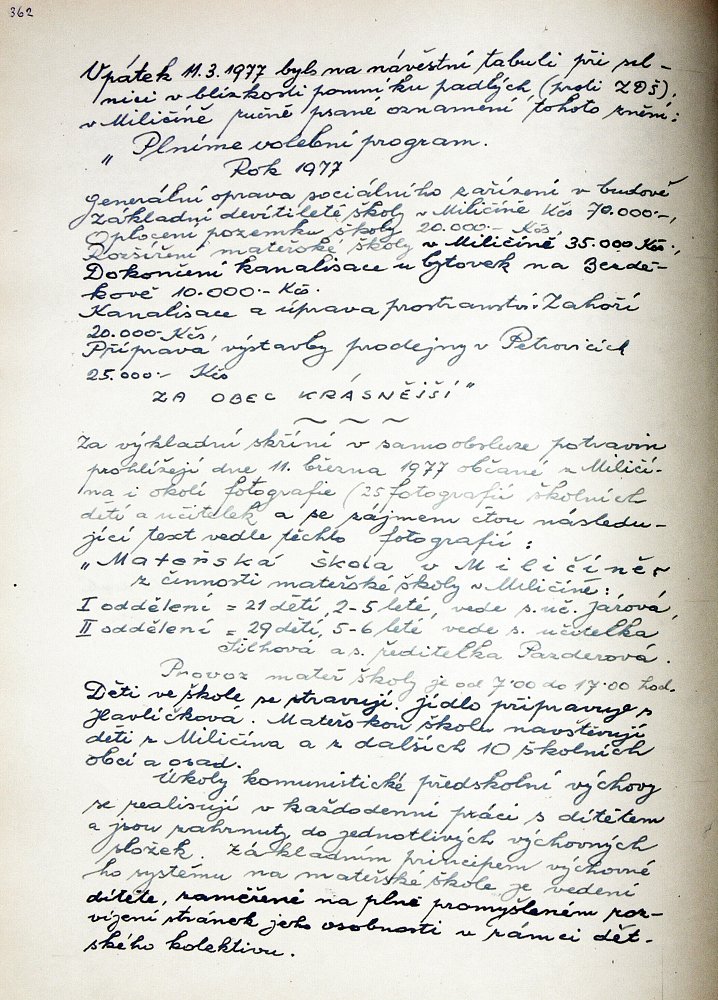 362
V pátek 11.3.1977 byls na návěstní tabuli při sil-
nici v blízkosti pomníku padlých (proti ZDŠ),
v Miličíně ručně psané oznámení, tohoto znění:
„Plníme volební program.
Rok 1977
Generální oprava sociálního zařízení v budově
Základní devítileté školy v Miličíně Kčs 70.000.-,
Oplocení pozemku školy 20.000.- Kčs,
Rozšíření mateřské školy v Miličíně 35.000 Kčs.,
Dokončení kanalisace u bytovek na Bezdě-
kově 10.000.- Kčs.
Kanalisace a úprava prostranství: Záhoří
20.000.- Kčs,
Příprava výstavby prodejny v Petrovicích
25.000.- Kčs
ZA OBEC KRÁSNĚJŠÍ"
Za výkladní skříní v samoobsluze potravin
prohlížejí dne 11. března 1977 občané z Miličí-
na i okolí fotografie (25 fotografií školních
dětí a učitelek a se zájmem čtou následu-
jící text vedle těchto fotografií:
„Mateřská škola v Miličíně-
z činnosti mateřské školy v Miličíně:
I oddělení = 21 dětí, 2-5 leté, vede s. uč. Jarová,
II oddělení = 29 dětí, 5-6 leté, vede s. učitelka
Tichová a s. ředitelka Pazderová.
Provoz mateř školy je od 7.00 do 17.00 hod.
Děti ve škole se stravují. Jídlo připravuje s
Havlíčková. Mateřskou školu navštěvují
děti z Miličína a z dalších 10 školních
obcí a osad.
Úkoly komunistické předškolní výchovy
se realisují v každodenní práci s dítětem
a jsou zahrnuty do jednotlivých výchovných
složek. Základním principem výchovné
ho systému na mateřské škole je vedení
dítěte, zaměřené na plně promyšleném roz-
víjení stránek jeho osobnosti v rámci dět-
ského kolektivu.